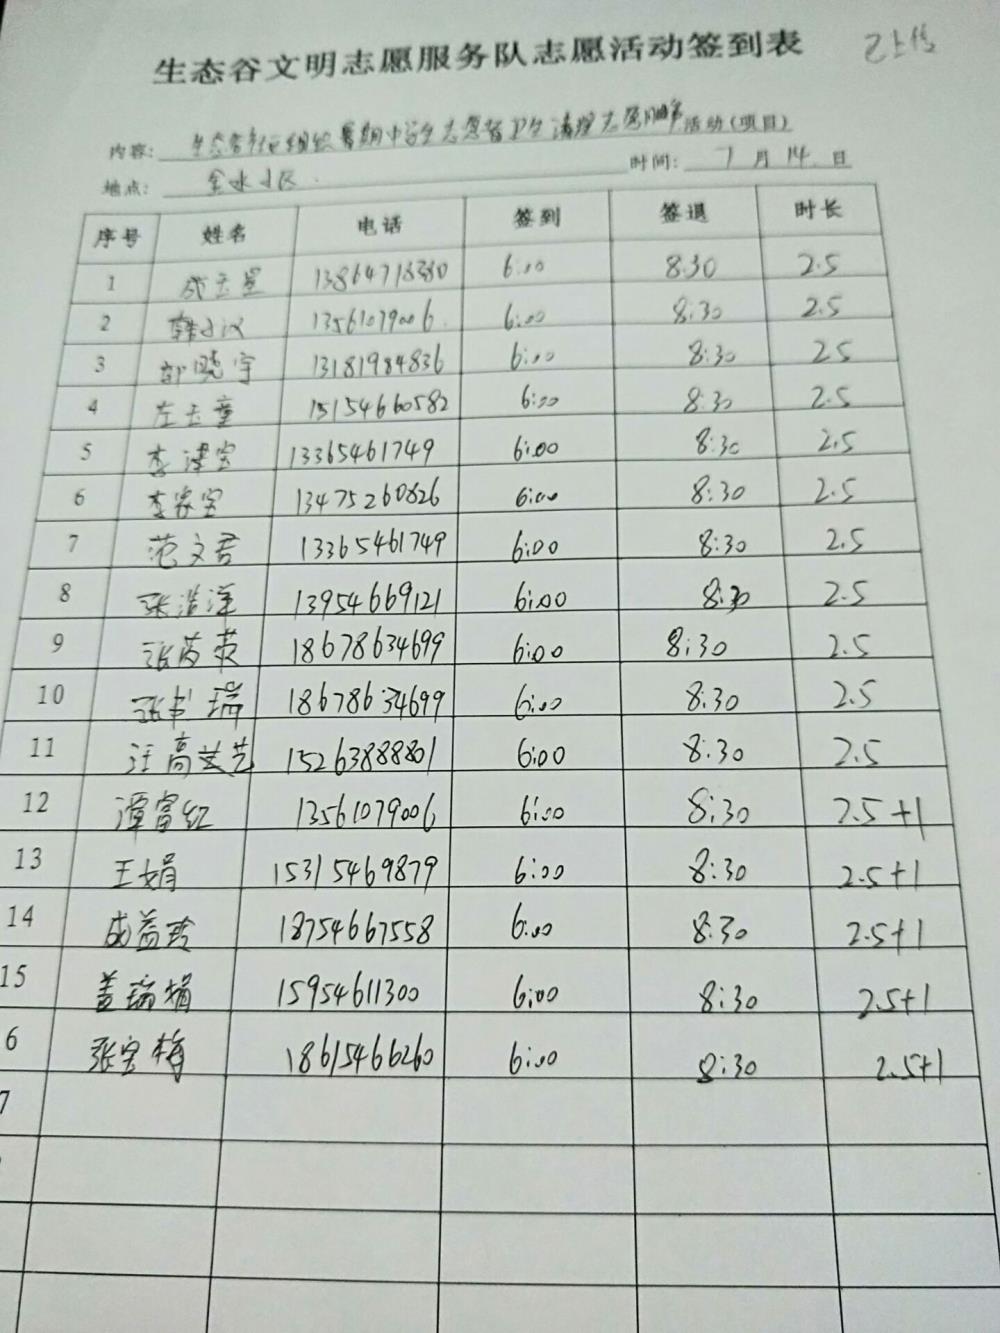 生态谷文明志愿服务队志愿活动签到表 已上传
内容: 生态谷 组织暑期中学生志愿者卫生清理志愿服务活动(项目)
地点: 金水小区. 时间: 7月14日
序号 姓名 电话 签到 签退 时长
1 成玉星 13864718380 6:00 8:30 2.5
2 韩小汉 13561079006 6:00 8:30 2.5
3 邵晓宇 13181984836 6:00 8:30 25
4 左玉童 15154660582 6:00 8:30 2.5
5 李津宝 13365461749 6:00 8:30 2.5
6 李家宝 13475260826 6:00 8:30 2.5
7 范文君 13365461749 6:00 8:30 2.5
8 张浩洋 13954669121 6:00 8:30 2.5
9 张 18678634699 6:00 8:30 2.5
10 张书瑞 18678634699 6:00 8:30 2.5
11 汪高 艺 15263888801 6:00 8:30 2.5
12 潭富红 13561079006 6:00 8:30 2.5+1
13 王娟 15315469879 6:00 8:30 2.5+1
14 成益玲 18754667558 6:00 8:30 2.5+1
15 盖瑞娟 15954611300 6:00 8:30 2.5+1
6 张宝梅 18615466260 6:00 8:30 2.5+1
7